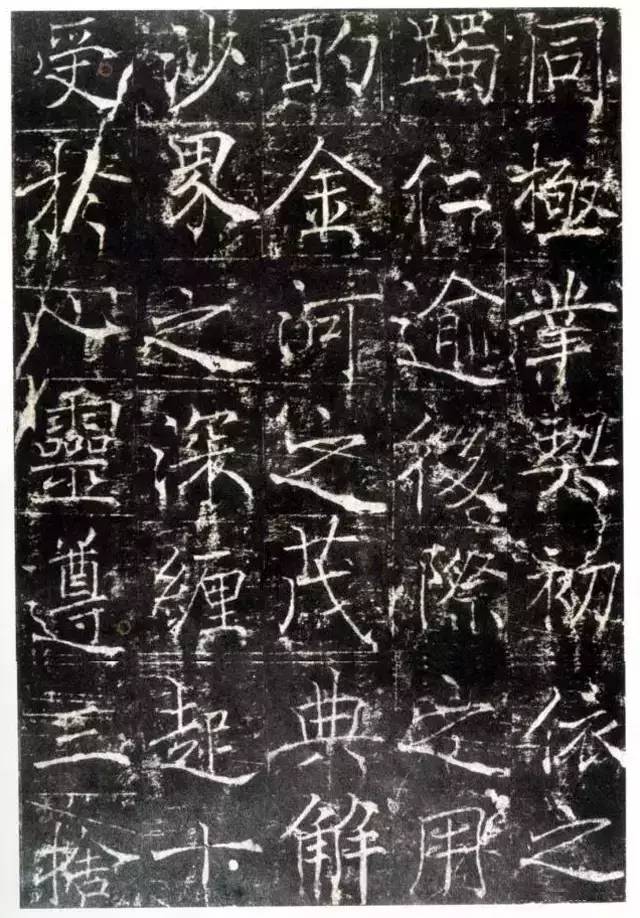 同極業契初依之
躅仁逾後際之用
酌金河之茂典解
沙界之深纏起十
受於靈遵三揩